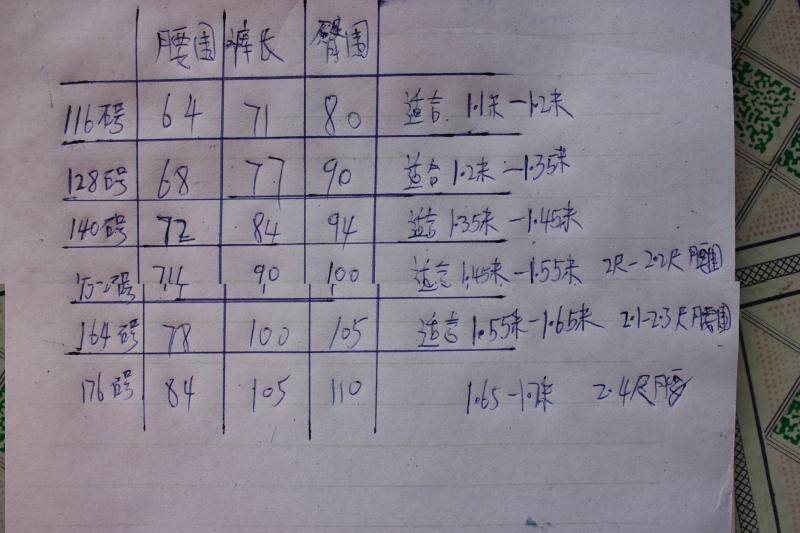 腰围 裤长 臀围
116码 64 71 80 适合 1.1米-1.2米
128码 68 77 90 适合 1.2米-1.35米
140码 72 84 94 适合 1.35米-1.45米
码 74 90 100 适合 1.45米-1.55米 2尺-2.2尺腰围
164码 78 100 105 适合 1.55米-1.65米 2.1-2.3尺腰围
176码 84 105 110 1.65-1.7米 2.4尺腰